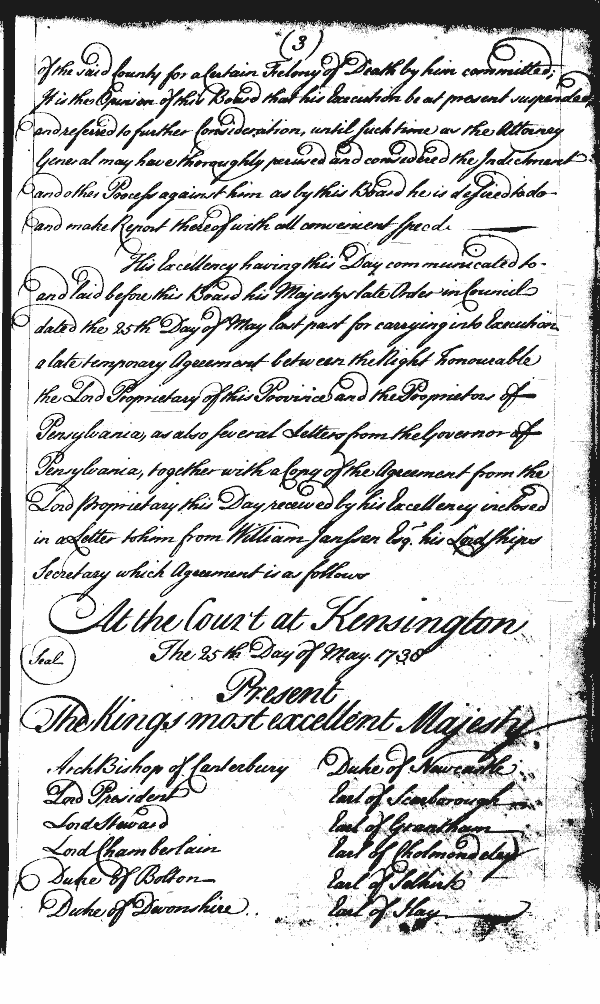 (3)
of the said County for a Certain Felony of Death by him committed;
It is the Opinion of this Board that his Execution be at present suspended
and referred to further Consideration, until such time as the Attorney
General may have thoroughly perused and considered the Indictment
and other Process against him as by this Board he is desired to do
and make Report thereof with all convenient speed.
His Excellency having this Day communicated to-
and laid before this Board his Majestys late Order in Council
dated the 25th Day of May last past for carrying into Execution
a late temporary Agreement between the Right honourable
the Lord Proprietary of this Province and the Proprietors of
Pensylvania, as also several Letters from the Governor of
Pensylvania, together with a Copy of the Agreement from the
Lord Proprietary this Day received by his Excellency inclosed
in a Letter to him from William Janssen Esqr. his Lordships
Secretary which Agreement is as follows
At the Court at Kensington
Seal
The 25th Day of May 1738
Present
The Kings most excellent Majesty
ArchBishop of Canterbury
Duke of Newcastle
Lord President
Earl of Scarborough
Lord Steward
Earl of Grantham
Lord Chamberlain
Earl of Cholmondeley
Duke of Bolton
Earl of Selkirk
Duke of Devonshire
Earl of Ilay